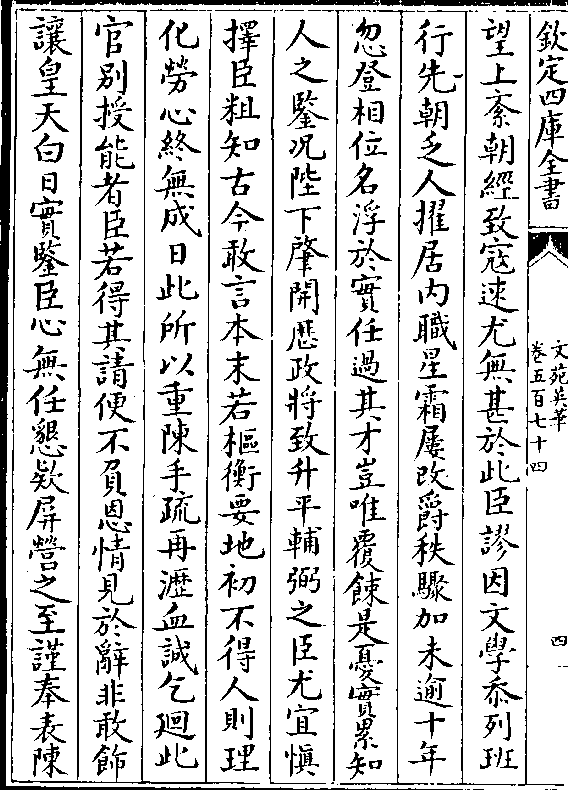 欽定四庫全書
文苑英華
卷五百七十四
四
望上紊朝經致寇速尤無甚於此臣謬因文學忝列班
行先朝乏人擢居内職星霜屢改爵秩驟加未逾十年
忽登相位名浮於實任過其才豈唯覆餗是憂實累知
人之鑒况陛下肇開歴政將致升平輔弼之臣尤宜慎
擇臣粗知古今敢言本末若樞衡要地初不得人則理
化勞心終無成日此所以重陳手疏再瀝血誠乞廻此
官别授能者臣若得其請便不負恩情見於辭非敢飾
讓皇天白日實鑒臣心無任懇欵屏營之至謹奉表陳